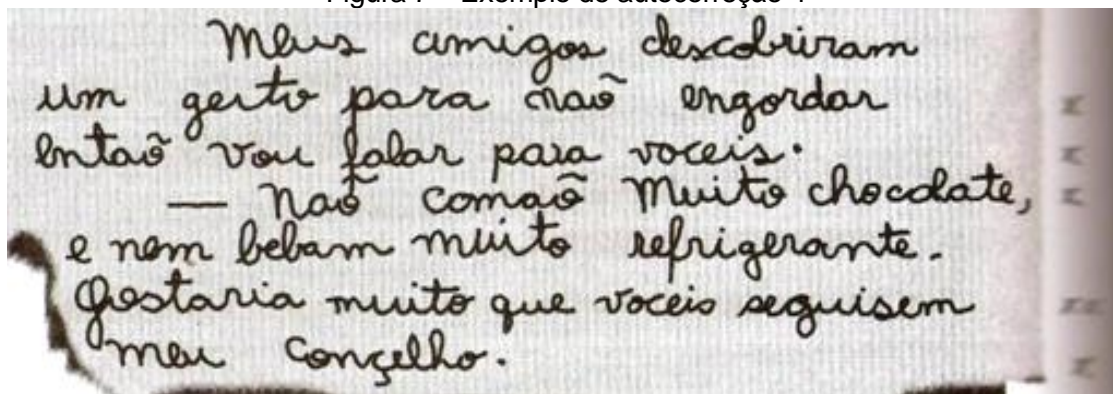 Figura 7 – Exemplo de autocorreção 1
Meus amigos descobriram
um geito para naõ engordar
entaõ vou falar para voceis.
— Naõ comaõ muito chocolate,
e nem bebam muito refrigerante.
Gostaria muito que voceis seguisem
meu conçelho.